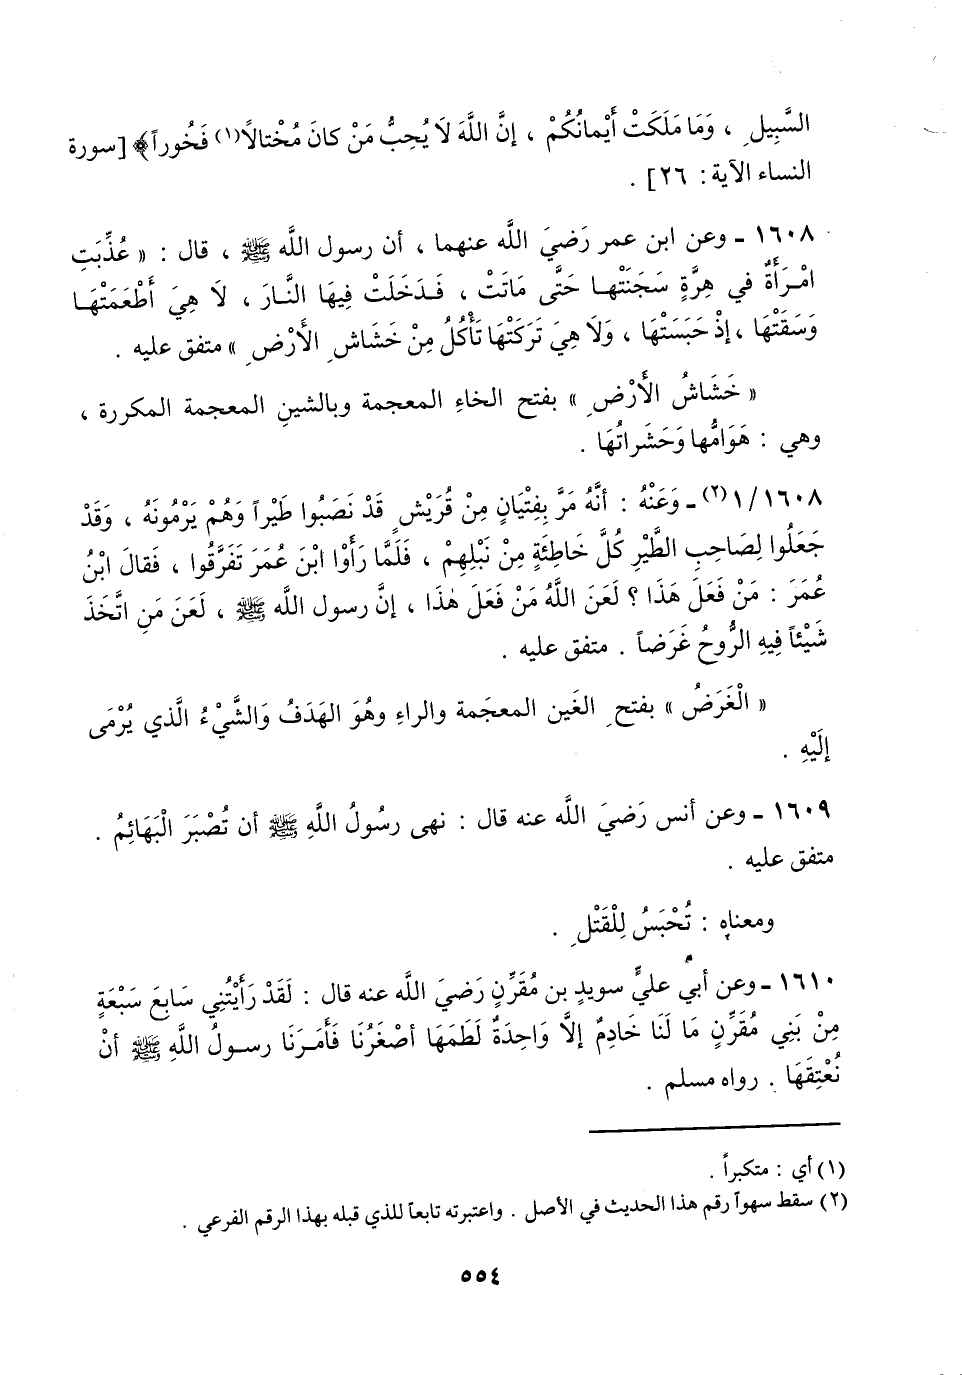 السَّبِيلِ ، وَمَا مَلَكَتْ أَيْمانُكُمْ ، إنَّ اللَّهَ لَا يُحِبُّ مَنْ كانَ مُخْتالًا(١) فَخُوراً﴾ [سورة
النساء الآية : ٢٦] .
١٦٠٨ ـ وعن ابن عمر رَضيَ اللَّه عنهما ، أن رسول اللَّه ﷺ ، قال : « عُذِّبَتِ
امْرَأَةٌ في هِرَّةٍ سَجَنَتْهـا حَتَّى مَاتَتْ ، فَـدَخَلَتْ فِيهَا النَّـارَ ، لَا هِيَ أَطْعَمَتْهَـا
وَسَقَتْهَا ، إذْ حَبَسَتْهَا ، وَلَا هِيَ تَرَكَتْهَا تَأْكُلُ مِنْ خَشَاشِ الأَرْضِ » متفق عليه .
« خَشَاشُ الأَرْضِ » بفتح الخاءِ المعجمة وبالشينِ المعجمة المكررة ،
وهي : هَوَامُّها وَحَشَراتُهَا .
١/١٦٠٨(٢) ـ وَعَنْهُ : أنَّهُ مَرَّ بِفِتْيَانٍ مِنْ قُرَيْشٍ قَدْ نَصَبُوا طَيْراً وَهُمْ يَرْمُونَهُ ، وَقَدْ
جَعَلُوا لِصَاحِبِ الطَّيْرِ كُلَّ خَاطِئَةٍ مِنْ نَبْلِهِمْ ، فَلَمَّا رَأَوْا ابْنَ عُمَرَ تَفَرَّقُوا ، فَقالَ ابْنُ
عُمَرَ : مَنْ فَعَلَ هَذَا ؟ لَعَنَ اللَّهُ مَنْ فَعَلَ هٰذَا ، إنَّ رسول اللَّه ﷺ ، لَعَنَ مَنِ اتَّخَذَ
شَيْئاً فِيهِ الرُّوحُ غَرَضاً . متفق عليه .
« الْغَرَضُ » بفتحِ الغَين المعجَمة والراءِ وهُوَ الهَدَفُ وَالشَّيْءُ الَّذي يُرْمَى
إلَيْهِ .
١٦٠٩ ـ وعن أنس رَضيَ اللَّه عنه قال : نهى رسُولُ اللَّهِ ﷺ أن تُصْبَرَ الْبَهَائِمُ .
متفق عليه .
ومعناه : تُحْبَسُ لِلْقَتْلِ .
١٦١٠ ـ وعن أبي عليٍّ سويدِ بن مُقَرِّنٍ رَضيَ اللَّه عنه قال : لَقَدْ رَأَيْتُنِي سَابِعَ سَبْعَةٍ
مِنْ بَنِي مُقَرِّنٍ مَا لَنَا خَادِمٌ إلَّا وَاحِدَةٌ لَطَمَهَا أصْغَرُنَا فَأَمَـرَنَا رسـولُ اللَّهِ ﷺ أنْ
نُعْتِقَهَا . رواه مسلم .
(١) أي : متكبراً .
(٢) سقط سهواً رقم هذا الحديث في الأصل . واعتبرته تابعاً للذي قبله بهذا الرقم الفرعي .
٥٥٤